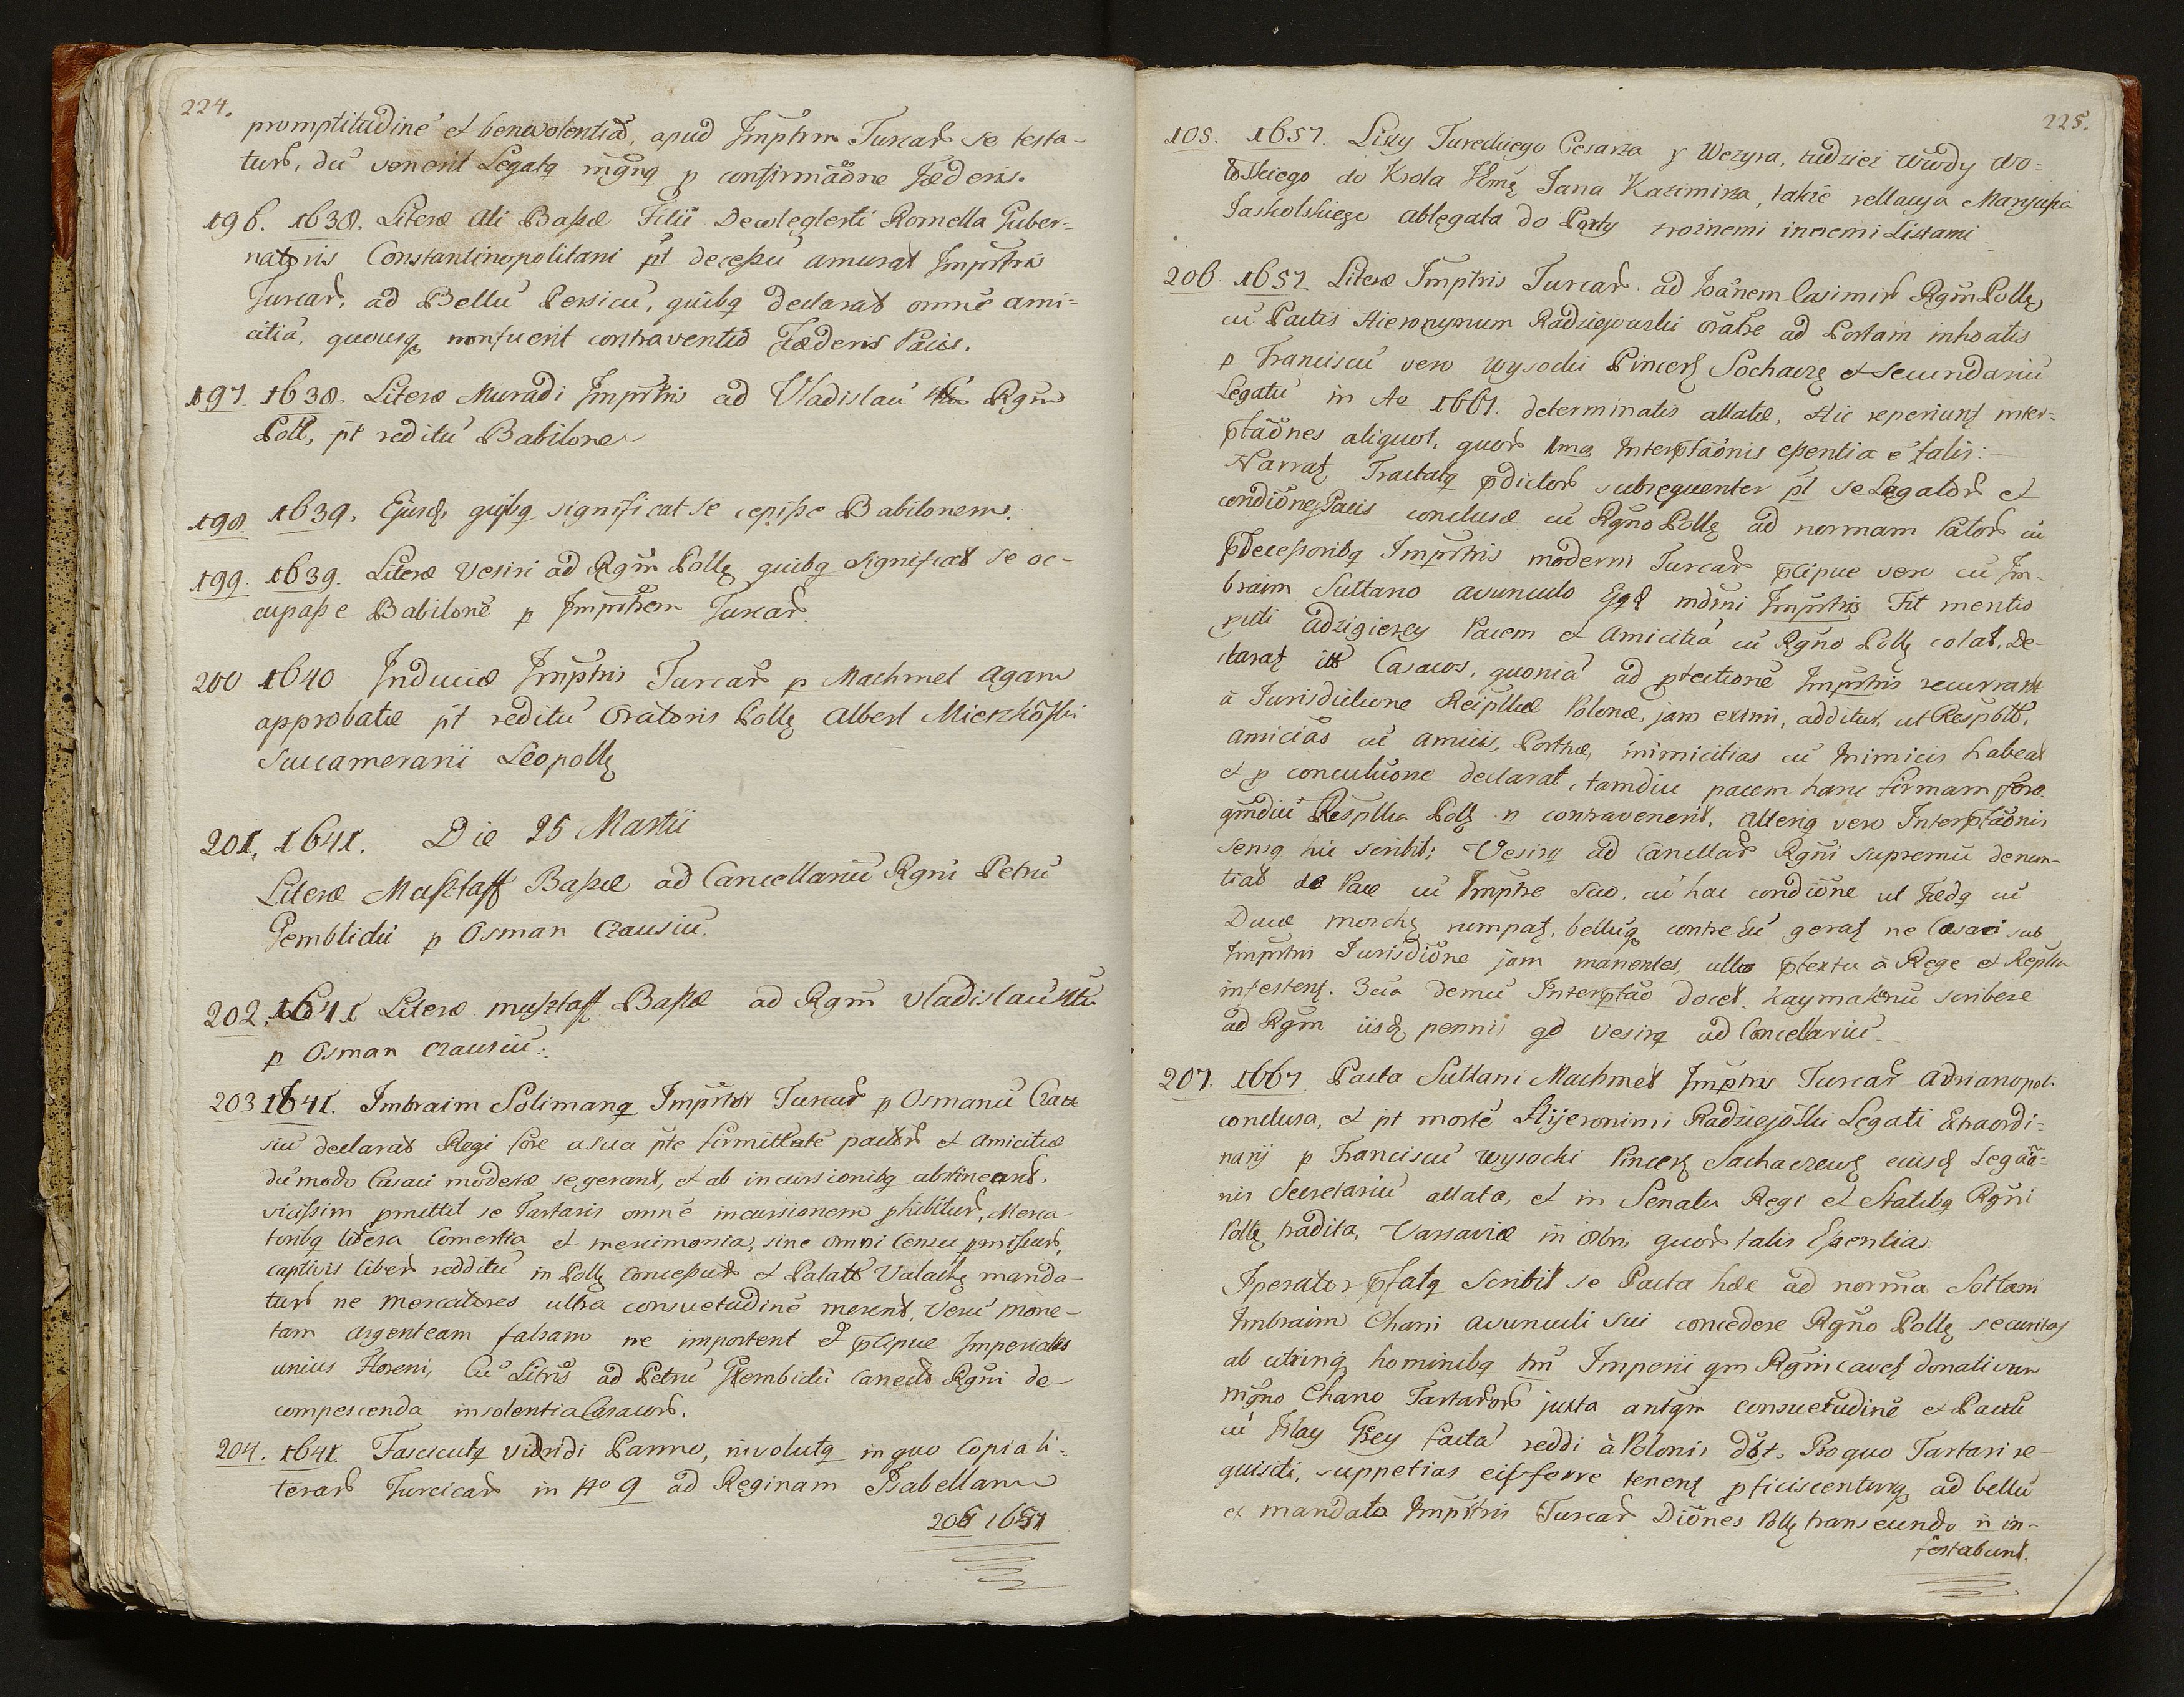 224.
promptitudinē et benevolentiā, apud Imptrm Turcar se testa-
tur, dū venerit Legatq māgnq p confirmāōne Fæderis.
196. 1638. Literæ Ali Baßæ Filii Romella Guber-
natoris Constantinopolitani pt deceßū amurat Imprtris
Turcar. ad Bellū Persicū, quibq declarat omnē ami-
citiā, quousq non fuerit contraventū Fæderis Pacis.
197 1638. Literæ Muradi Imprtris ad Vladislaū Rgm
Poll, pt reditū Babilone
198. 1639. Ejusd, quibq significat se cepiße Babilonem.
199. 1639. Literæ Vesiri ad Rgm Pollę quibq significat se oc-
cupaße Babilonē p Imprtrem Turcar.
200 1640 Induciæ Imptris Turcar p Machmet Agam
approbatæ pt reditū Oratoris Pollę Albert
Succamerarii Leopollę
201. 1641. Die 25 Martii
Literæ Baßæ ad Cancellariū Rgni Petrū
Gemblicki p Osman Czausiū.
202. 1641 Literæ Baßæ ad Rgm Vladislaū
p Osman Czausiū.
203 1641. Imbraim Solimanq Imprtor Turcar p Osmanū Czau
siū declarat Regi fore a sua pte firmittatē pactor et Amicitiæ
dū modo Casaci modestæ se gerant, et ab incursionibq abstineant.
vicißim pmittit se Tartaris omnē incursionem phibitur, Merca-
toribq libera Comertia et mercimonia, sine omni Censu pmißur,
captivis liber redditū in Pollę conceßur et Palat Valachę manda-
tur ne Mercatores ultra consuetudinē merent, Verū mone-
tam argenteam falsam ne important et pcipue Imperiales
unius Floreni, Cū Litris ad Petrū Gembicki Rgni de
compescenda insolentia Casacor.
204. 1641. Fascicutq Viridi Panno, involutq in quo Copia li-
terar Turcicar in No 9 ad Reginam Isabellam
205 1651
225.
105. 1651. Listy Tureckiego Cesarza y Wezyra, tudziez wwody Wo-
łoskiego do Krola Jana Kazimirza, także rellacya Maryusza
Jaskolskiego Ablegata do Porty z roznemi innemi Listami
206. 1651 Literæ Imptris Turcar. ad Ioānem Casimir Rgm Pollę
cū Pactis Hieronymum Radziejowski orātre ad Portam inhoatis
p Franciscū vero Wysocki Pincerę Sochacę et Secundariū
Legatū in Ao 1667. determinatis allatæ, Hic reperiunt inter-
ptāōnes aliquot, quor 1ma Interptāōnis eßentia ē talis:
Narrat Tractatq pdictor subsequenter pt se Legator et
condiōnes Pacis conclusæ cū Rgno Pollę ad normam Pactor cū
pdeceßoribq Imprtris moderni Turcar pcipue vero cū Im-
braim Sultano avunculo mdrni Imprtris Fit mentio
Pacem et Amicitiā cū Rgno Pollę colat, De-
clarat itt Casacos, quoniā ad ptectionē Imprtris recurrant
à Jurisdictione Reipllcæ Polonæ, jam eximi, additur, ut Respblt,
amicias cū amicis, Porthæ, inimicitias cū inimicis habeat
et p conculuone declarat, tamdiu pacem hanc firmam fore
qmdiū Respllca Pollę n contravenerit, Alterig vero Interptāōnis
sensq hic scribit; Vesirq ad Cancellar Rgni supremū denun-
tiat de Pace cū Imptre suo. cū hac condiōne ut Fædq cū
Duce Moschę rumpat, bellūq contr eū gerat ne Casaci sub
Imprtris Jurisdiōne jam manentes, ullo ptextu à Rege et Repllca
infestent. 3cia demū Interptāo docet kaymakanū scribere
ad Rgm iisd pennis qd Vesirq ad Cancellariū
207. 1667 Pacta Sultani Machmet Imptris Turcar Adrianopoli
conclusa, et pt mortē Hijeronimi Radziejōski Legati Extraordi-
narij p Franciscū Wysocki Pincerę Sachaczewę eiusd Legāō-
nis Secretariū allata, et in Senatu Regi et Statibq Rgni
Pollę tradita, Varsaviæ in 8bri, quor talis Eßentia:
Iperator pfatq scribit se Pacta hæc ad normā Soltani
Imbraim Chani avunculi sui concedere Rgno Pollę securitas
ab utrinq hominibq tm Imperii qm Rgni cavet donativum
mgno Chano Tartaror juxta antqm consuetudinē et Pactū
cū Islay Grey factā reddi à Polonis Pro quo Tartari re-
quisiti, suppetias eis ferre tenent pficiscenturq ad bellū
ex mandato Imprtris Turcar Diōnes Pollę transeundo n in-
festabunt.